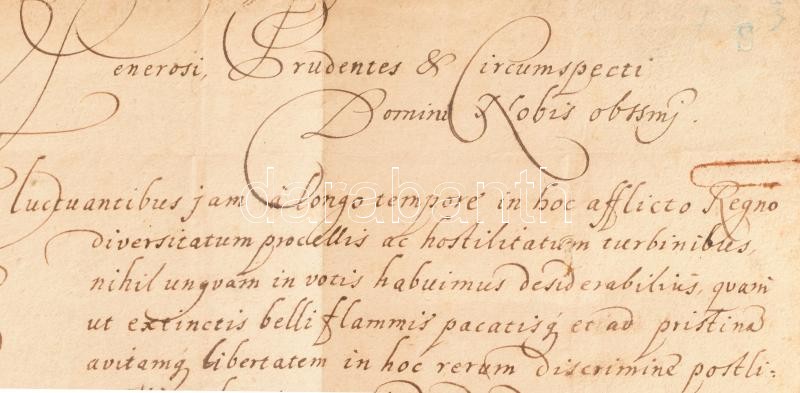 Generosi, Prudentes & Circumspecti
Domini Nobis obssmj.
Fluctuantibus jam à longo tempore in hoc afflicto Regno
diversitatum procellis ac hostilitatum turbinibus,
nihil unquam in votis habuimus desiderabilius, quam
ut extinctis belli flammis pacatisq́ et ad pristinã
avitamq́ libertatem in hoc rerum discrimine postli:
darabanth